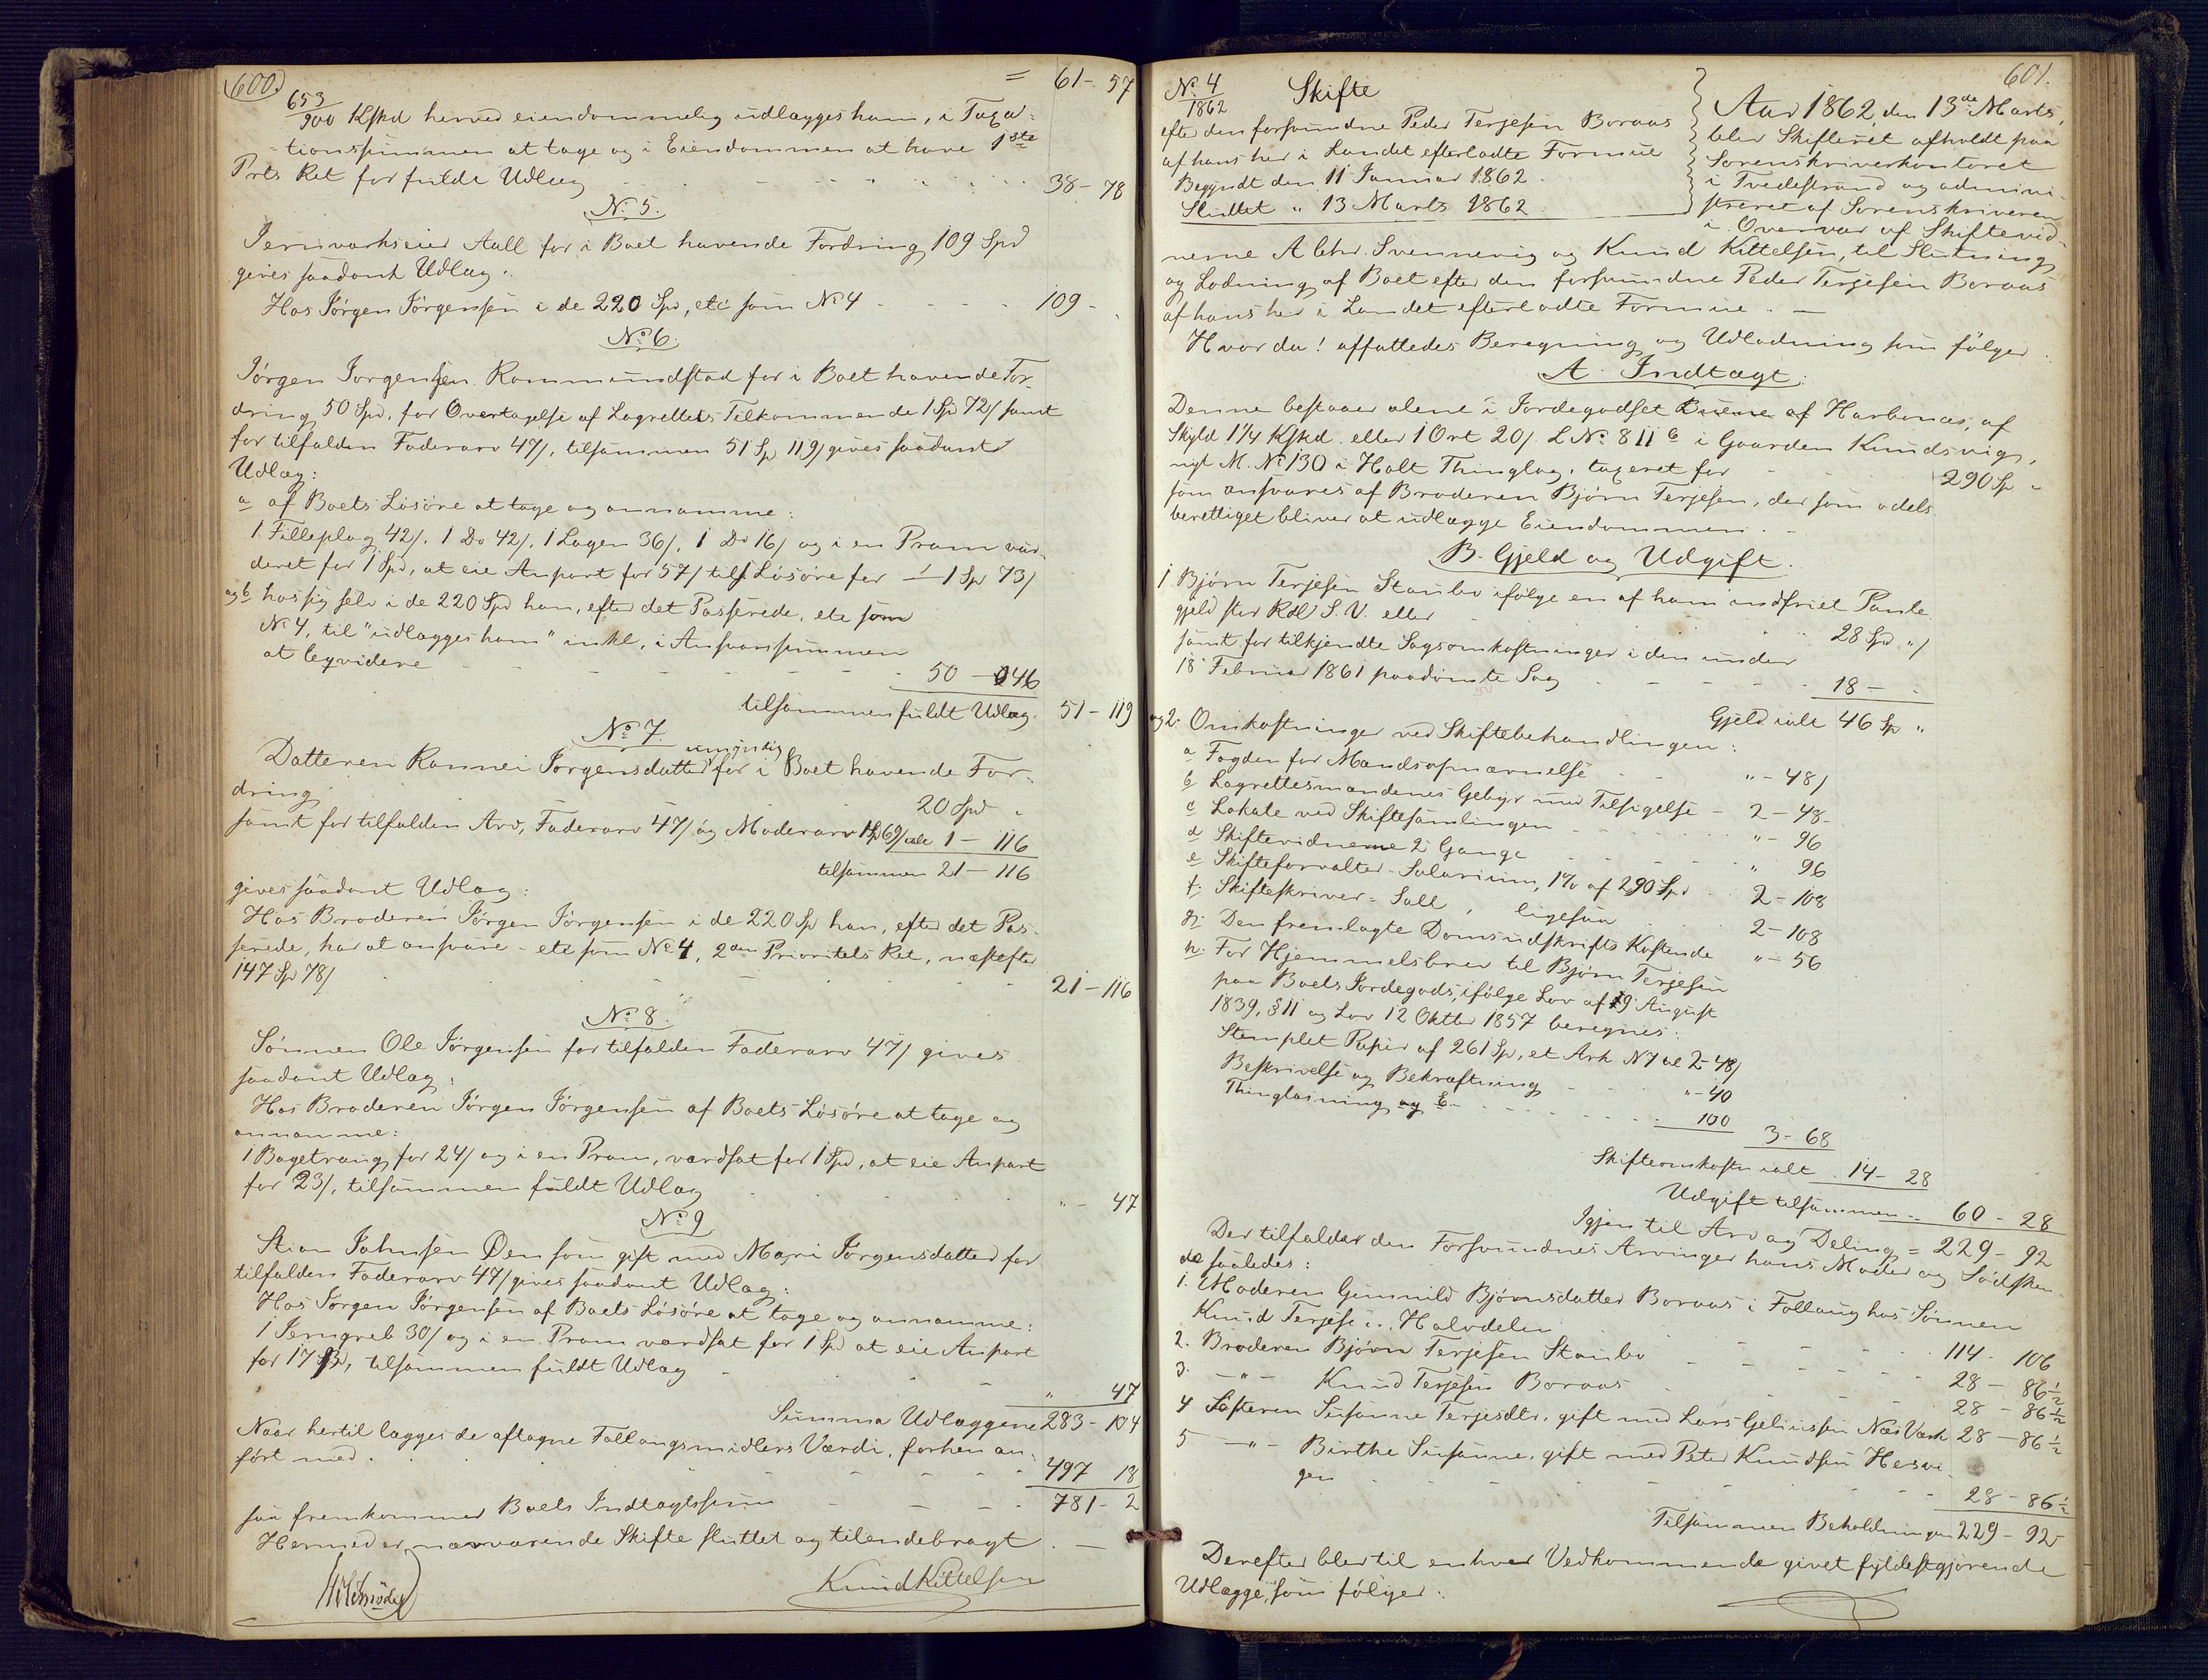 600.
= 61 - 57
653/900 Kskd herved eiendommelig udlægges ham, i Taxa-
tionssummen at tage og i Eiendommen at have 1ste
Prts Ret for fuldt Udlæg 38 - 78
No 5.
Jernværkseier Aall for i Boet havende Fordring 109 Spd
gives saadant Udlæg:
Hos Jørgen Jørgensen i de 220 Spd, etc som No 4 109 -
No 6.
Jørgen Jørgensen Rommundstad for i Boet havende For-
dring 50 Spd, for Overtagelse af Lagrettets Tilkommende 1 Spd 72/ samt
for tilfalden Faderarv 47/, tilsammen 51 Sp 119/ gives saadant
Udlæg:
a af Boets Løsøre at tage og annamme:
1 Filleplag 42/. 1 Do 42/. 1 Lagen 36/. 1 Do 16/ og i en Pram vur-
deret for 1 Spd, at eie Anpart for 57/ tils Løsøre for 1 Sp 73/
og b hos sig selv i de 220 Spd han, efter det Passerede, etc som
No 4, til "udlægges ham" inkl., i Ansvarssummen
at leqvidere 50 - 046
tilsammen fuldt Udlæg. 51 - 119
No 7.
Datteren Ronnei Jørgensdatter umyndig for i Boet havende For-
dring 20 Spd
samt for tilfalden Arv, Faderarv 47/ og Moderarv 1 Sp 69/ ialt 1 - 116
tilsammen 21 - 116
gives saadant Udlæg:
Hos Broderen Jørgen Jørgensen i de 220 Sp han, efter det Pas-
serede, har at ansvare - etc som No 4, 2den Prioritets Ret, næstefter
147 Spd 78/ 21 - 116
No 8.
Sønnen Ole Jørgensen for tilfalden Faderarv 47/ gives
saadant Udlæg:
Hos Broderen Jørgen Jørgensen af Boets Løsøre at tage og
annamme:
1 Bagetraug for 24/ og i en Pram, værdsat for 1 Spd, at eie Anpart
for 23/, tilsammen fuldt Udlæg " - 47
No 9
Stian Johnsen Øen som gift med Mari Jørgensdatter for
tilfalden Faderarv 47/ gives saadant Udlæg:
Hos Jørgen Jørgensen af Boets Løsøre at tage og annamme:
1 Jerngreb 30/ og i en Pram værdsat for 1 Spd at eie Anpart
for 17 ß, tilsammen fuldt Udlæg " 47
Summa Udlæggene 283 - 104
Naar hertil lægges de aftagne Follaugsmidlers Værdi, forhen an-
ført med 497 18
saa fremkommer Boets Indtægtssum 781 - 2
Hermed er nærværende Skifte sluttet og tilendebragt.
Knud Kittelsen
601.
No 4/1862 Skifte
efter den forsvundne Peder Terjesen Boraas
af hans her i Landet efterladte Formue
Begyndt den 11 Januar 1862.
Sluttet " 13 Marts 1862.
Aar 1862, den 13de Marts,
blev Skifteret afholdt paa
Sorenskriverkontoret
i Tvedestrand og admini-
streret af Sorenskriveren
i Overvær af Skiftevid-
nerne A Chr. Svennevig og Knud Kittelsen, til Slutning
og Lodning af Boet efter den forsvundne Peder Terjesen Boraas
af hans her i Landet efterladte Formue. -
Hvorda! affattedes Beregning og Udlodning som følger:
A. Indtægt:
Denne bestaaer alene i Jordegodset Buene af Harbonæs, af
Skyld 1 1/4 Kskd. eller 1 Ort 20/. L No 811 b i Gaarden Knudsvig,
nyt M. No 130 i Holt Thinglag, taxeret for 290 Sp "
som ansvares af Broderen Bjørn Terjesen, der som odels-
berettiget bliver at udlægge Eiendommen.
B. Gjeld og Udgift.
1 Bjørn Terjesen Staubo ifølge en af ham indfriet Pante-
gjeld stor Rdl S. V. eller 28 Spd "/
samt for tilkjendte Sagsomkostninger i den under
18 Februar 1861 paadømte Sag 18 -
Gjeld ialt 46 Sp "
og 2. Omkostninger ved Skiftebehandlingen:
a Fogden for Mandsopnævnelse " - 48/
b Lagrettesmændenes Gebyr med Tilsigelse - 2 - 48 -
c Lokale ved Skiftesamlingen " - 96
d Skiftevidnerne 2 Gange " 96
e Skifteforvalter-Salarium, 1% af 290 Spd 2 - 108
f. Skifteskriver-Sall, ligesaa 2 - 108
g. Den fremlagte Domsudskrifts Kostende " - 56
h. For Hjemmelsbrev til Bjørn Terjesen
paa Boets Jordegods, ifølge Lov af 19 August
1839, § 11 og Lov 12 Oktbr 1857 beregnes:
Stemplet Papir af 261 Sp, et Ark No 7 al 2 - 48/
Beskrivelse og Bekræftning " - 40
Thinglæsning og E. 100
3 - 68
Skifteomkostn ialt 14 - 28
Udgift tilsammen 60 - 28
Igjen til Arv og Deling = 229 - 92
Der tilfalder den Forsvundnes Arvinger hans Moder og Sødsken-
de saaledes:
1. Moderen Gunnild Bjørnsdatter Boraas i Follaug hos Sønnen
Knud Terjesen, Halvdelen 114 - 106
2. Broderen Bjørn Terjesen Staubo 28 - 86 1/2
3. - " - Knud Terjesen Boraas 28 - 86 1/2
4 Søsteren Susanne Terjesdtr. gift med Lars Geliussen Næs Værk 28 - 86 1/2
5 - " - Birthe Susanne, gift med Peter Knudsen Hesvi-
gen 28 - 86 1/2
Tilsammen Beholdningen 229 - 92
Derefter blev til enhver Vedkommende givet fyldestgjørende
Udlægge, som følger: